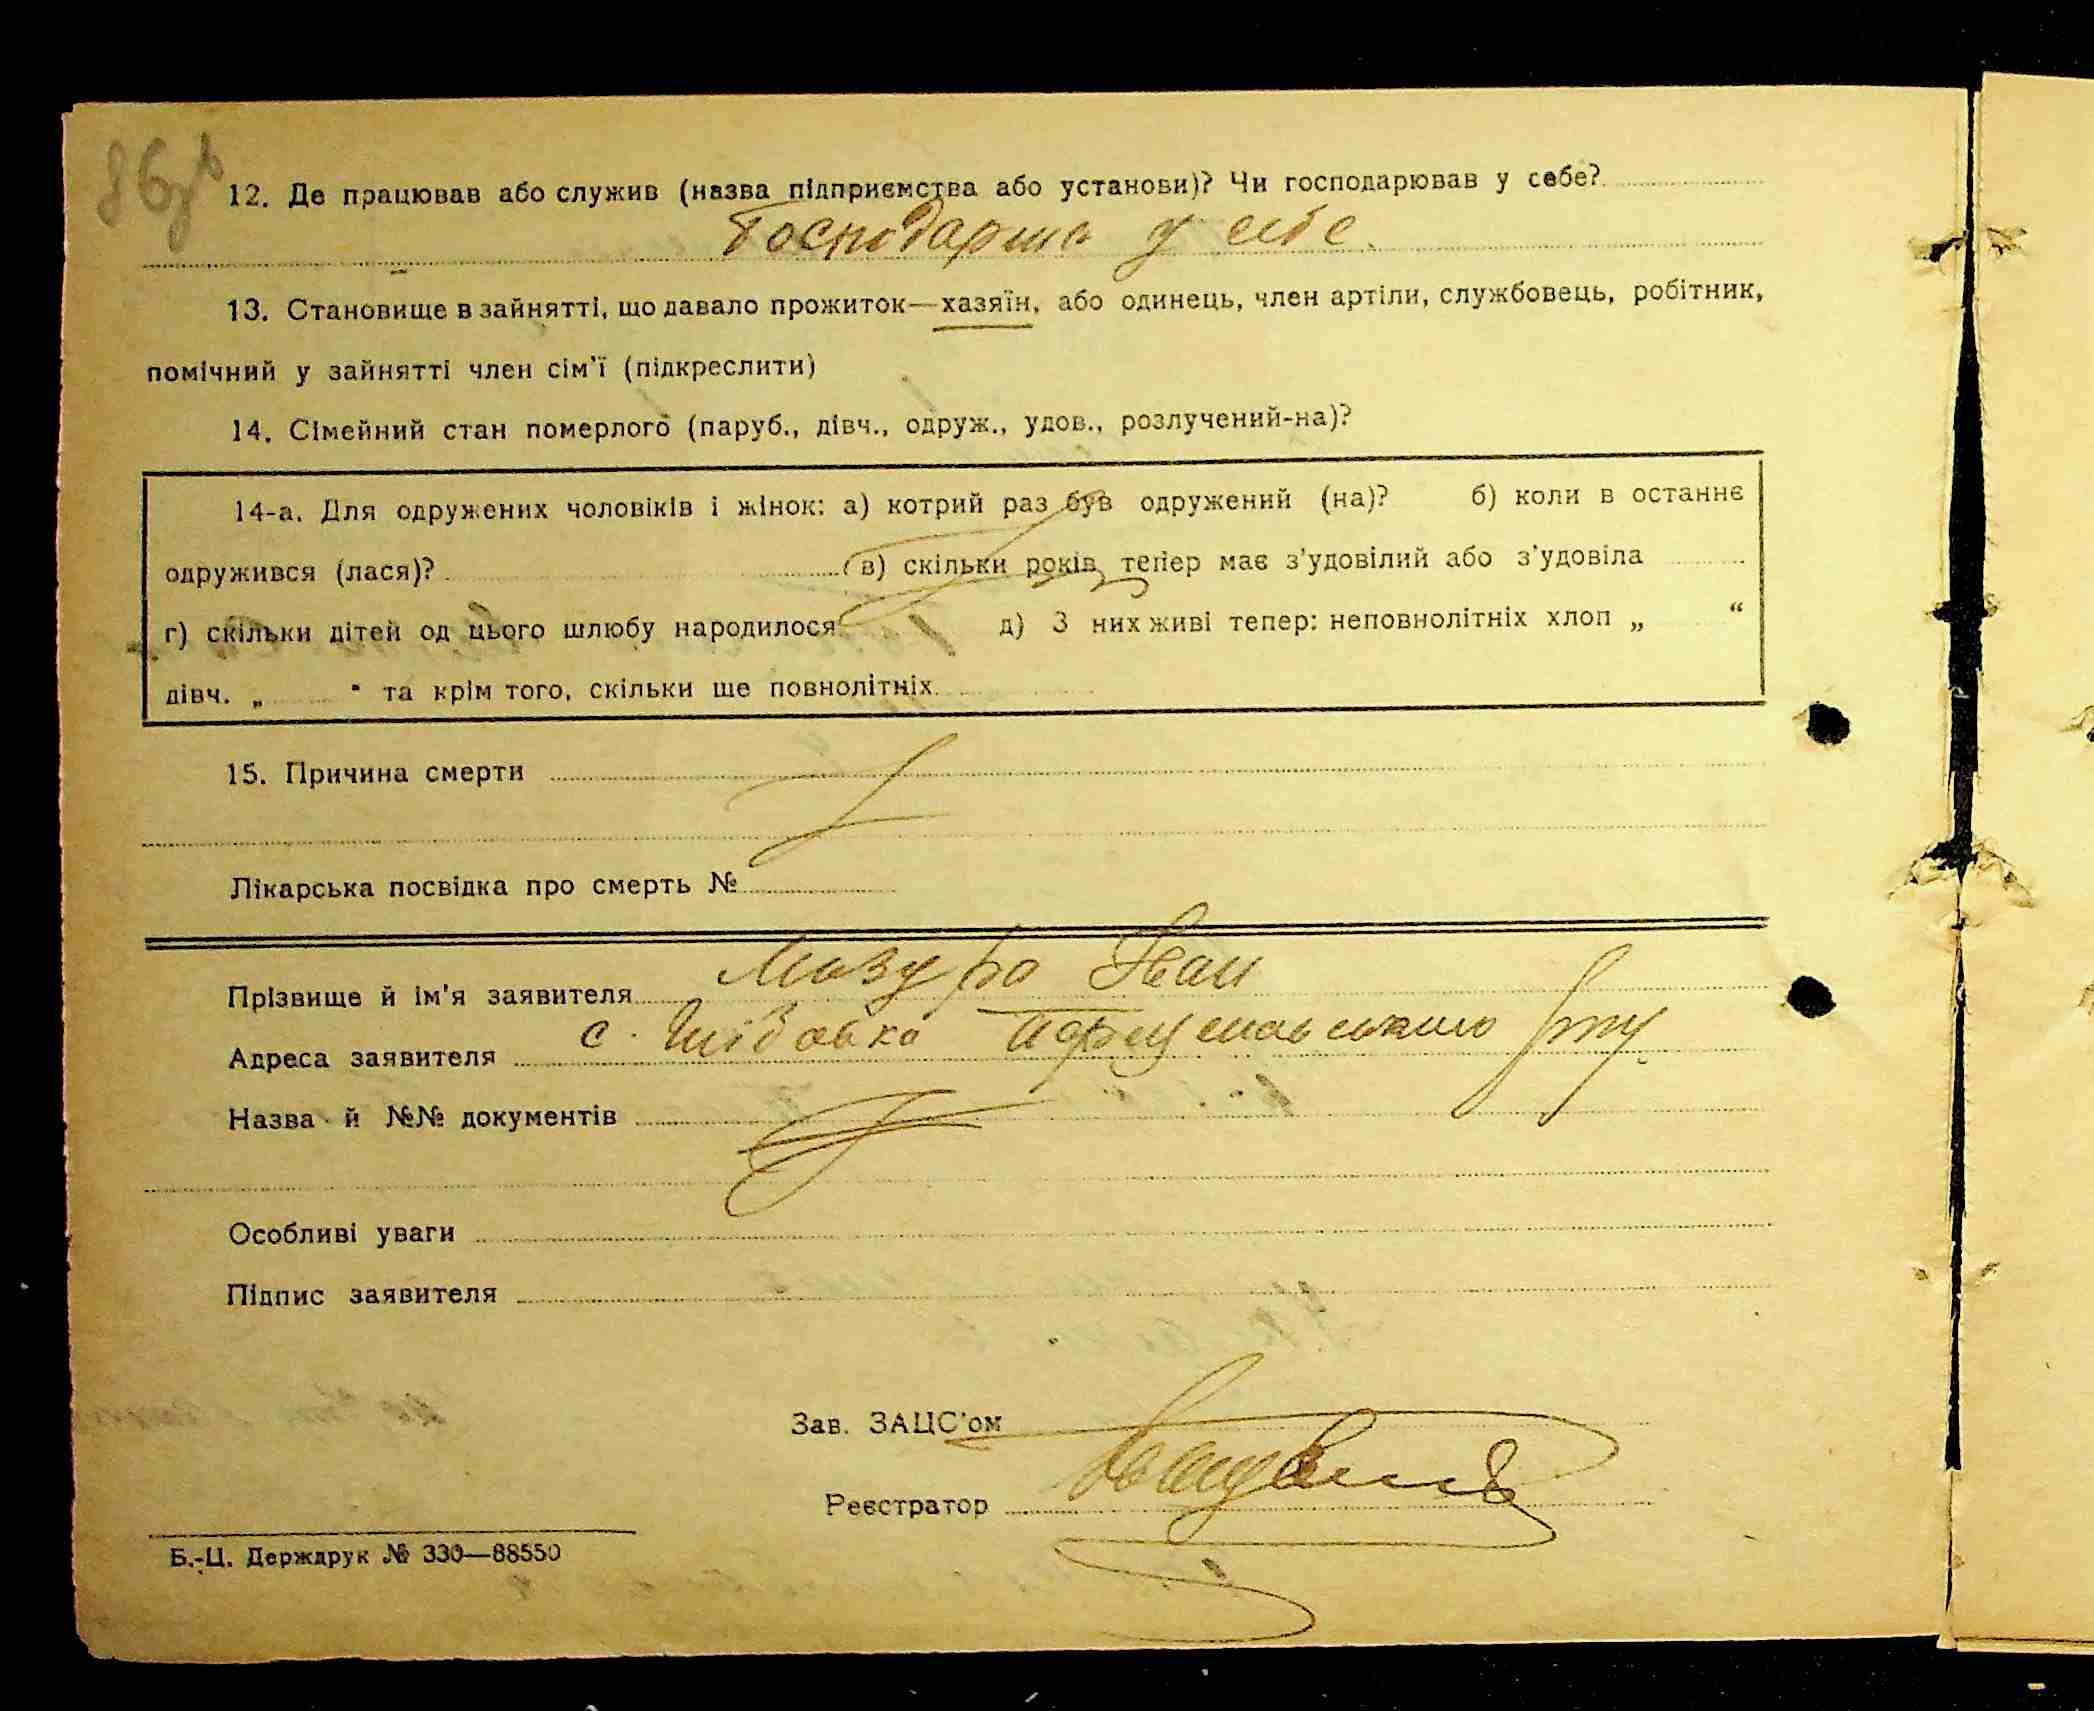 86зв
12. Де працював або служив (назва підприємства або установи)? Чи господарював у себе?
Господарша у себе.
13. Становище в зайнятті, що давало прожиток—хазяїн, або одинець, член артіли, службовець, робітник,
помічний у зайнятті член сім'ї (підкреслити)
14. Сімейний стан померлого (паруб., дівч., одруж., удов., розлучений-на)?
14-а. Для одружених чоловіків і жінок: а) котрий раз був одружений (на)? б) коли в останнє
одружився (лася)? в) скільки років тепер має з'удовілий або з'удовіла
г) скільки дітей од цього шлюбу народилося д) З них живі тепер: неповнолітніх хлоп „ “
дівч. „ “ та крім того, скільки ще повнолітніх.
15. Причина смерти
Лікарська посвідка про смерть №
Прізвище й ім'я заявителя Мазура Іван
Адреса заявителя с. Шібовка
Назва й №№ документів
Особливі уваги
Підпис заявителя
Зав. ЗАЦС'ом
Реєстратор
Б.-Ц. Держдрук № 330—88550